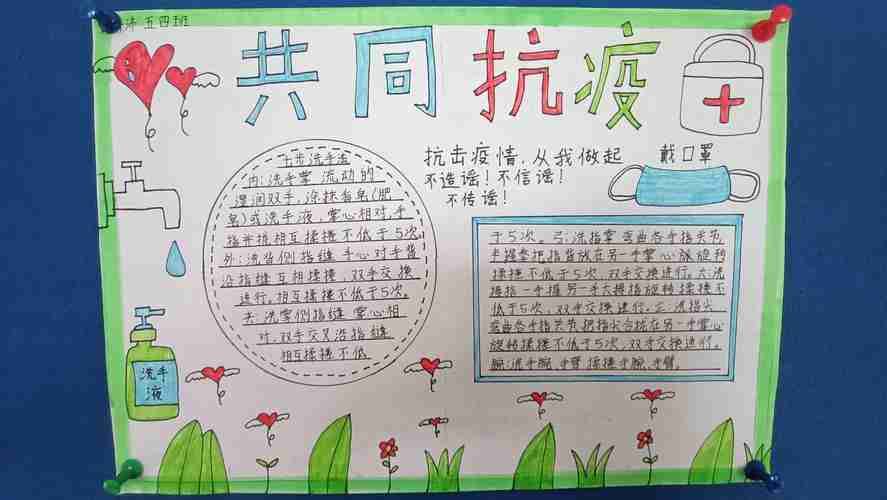 沛 五四班
共同抗疫
抗击疫情,从我做起
不造谣!不信谣!
不传谣!
戴口罩
七步洗手法
内:洗手掌 流动的
湿润双手,涂抹香皂(肥
皂)或洗手液,掌心相对,手
指并拢相互揉搓不低于5次。
外:洗背侧指缝 手心对手背
沿指缝互相揉搓,双手交换
进行。相互揉搓不低于5次。
夹:洗掌侧指缝 掌心相
对,双手交叉沿指缝
相互揉搓不低
于5次。弓:洗指掌 弯曲各手指关节,
半握拳把指背放在另一手掌心旋旋转
揉搓不低于5次,双手交换进行。大:洗
拇指 一手握另一手大拇指旋转揉搓不
低于5次,双手交换进行。立:洗指尖
弯曲各手指关节,把指尖合拢在另一手掌心
旋转揉搓不低于5次,双手交换进行。
腕:洗手腕、手臂 揉搓手腕、手臂。
洗手
液